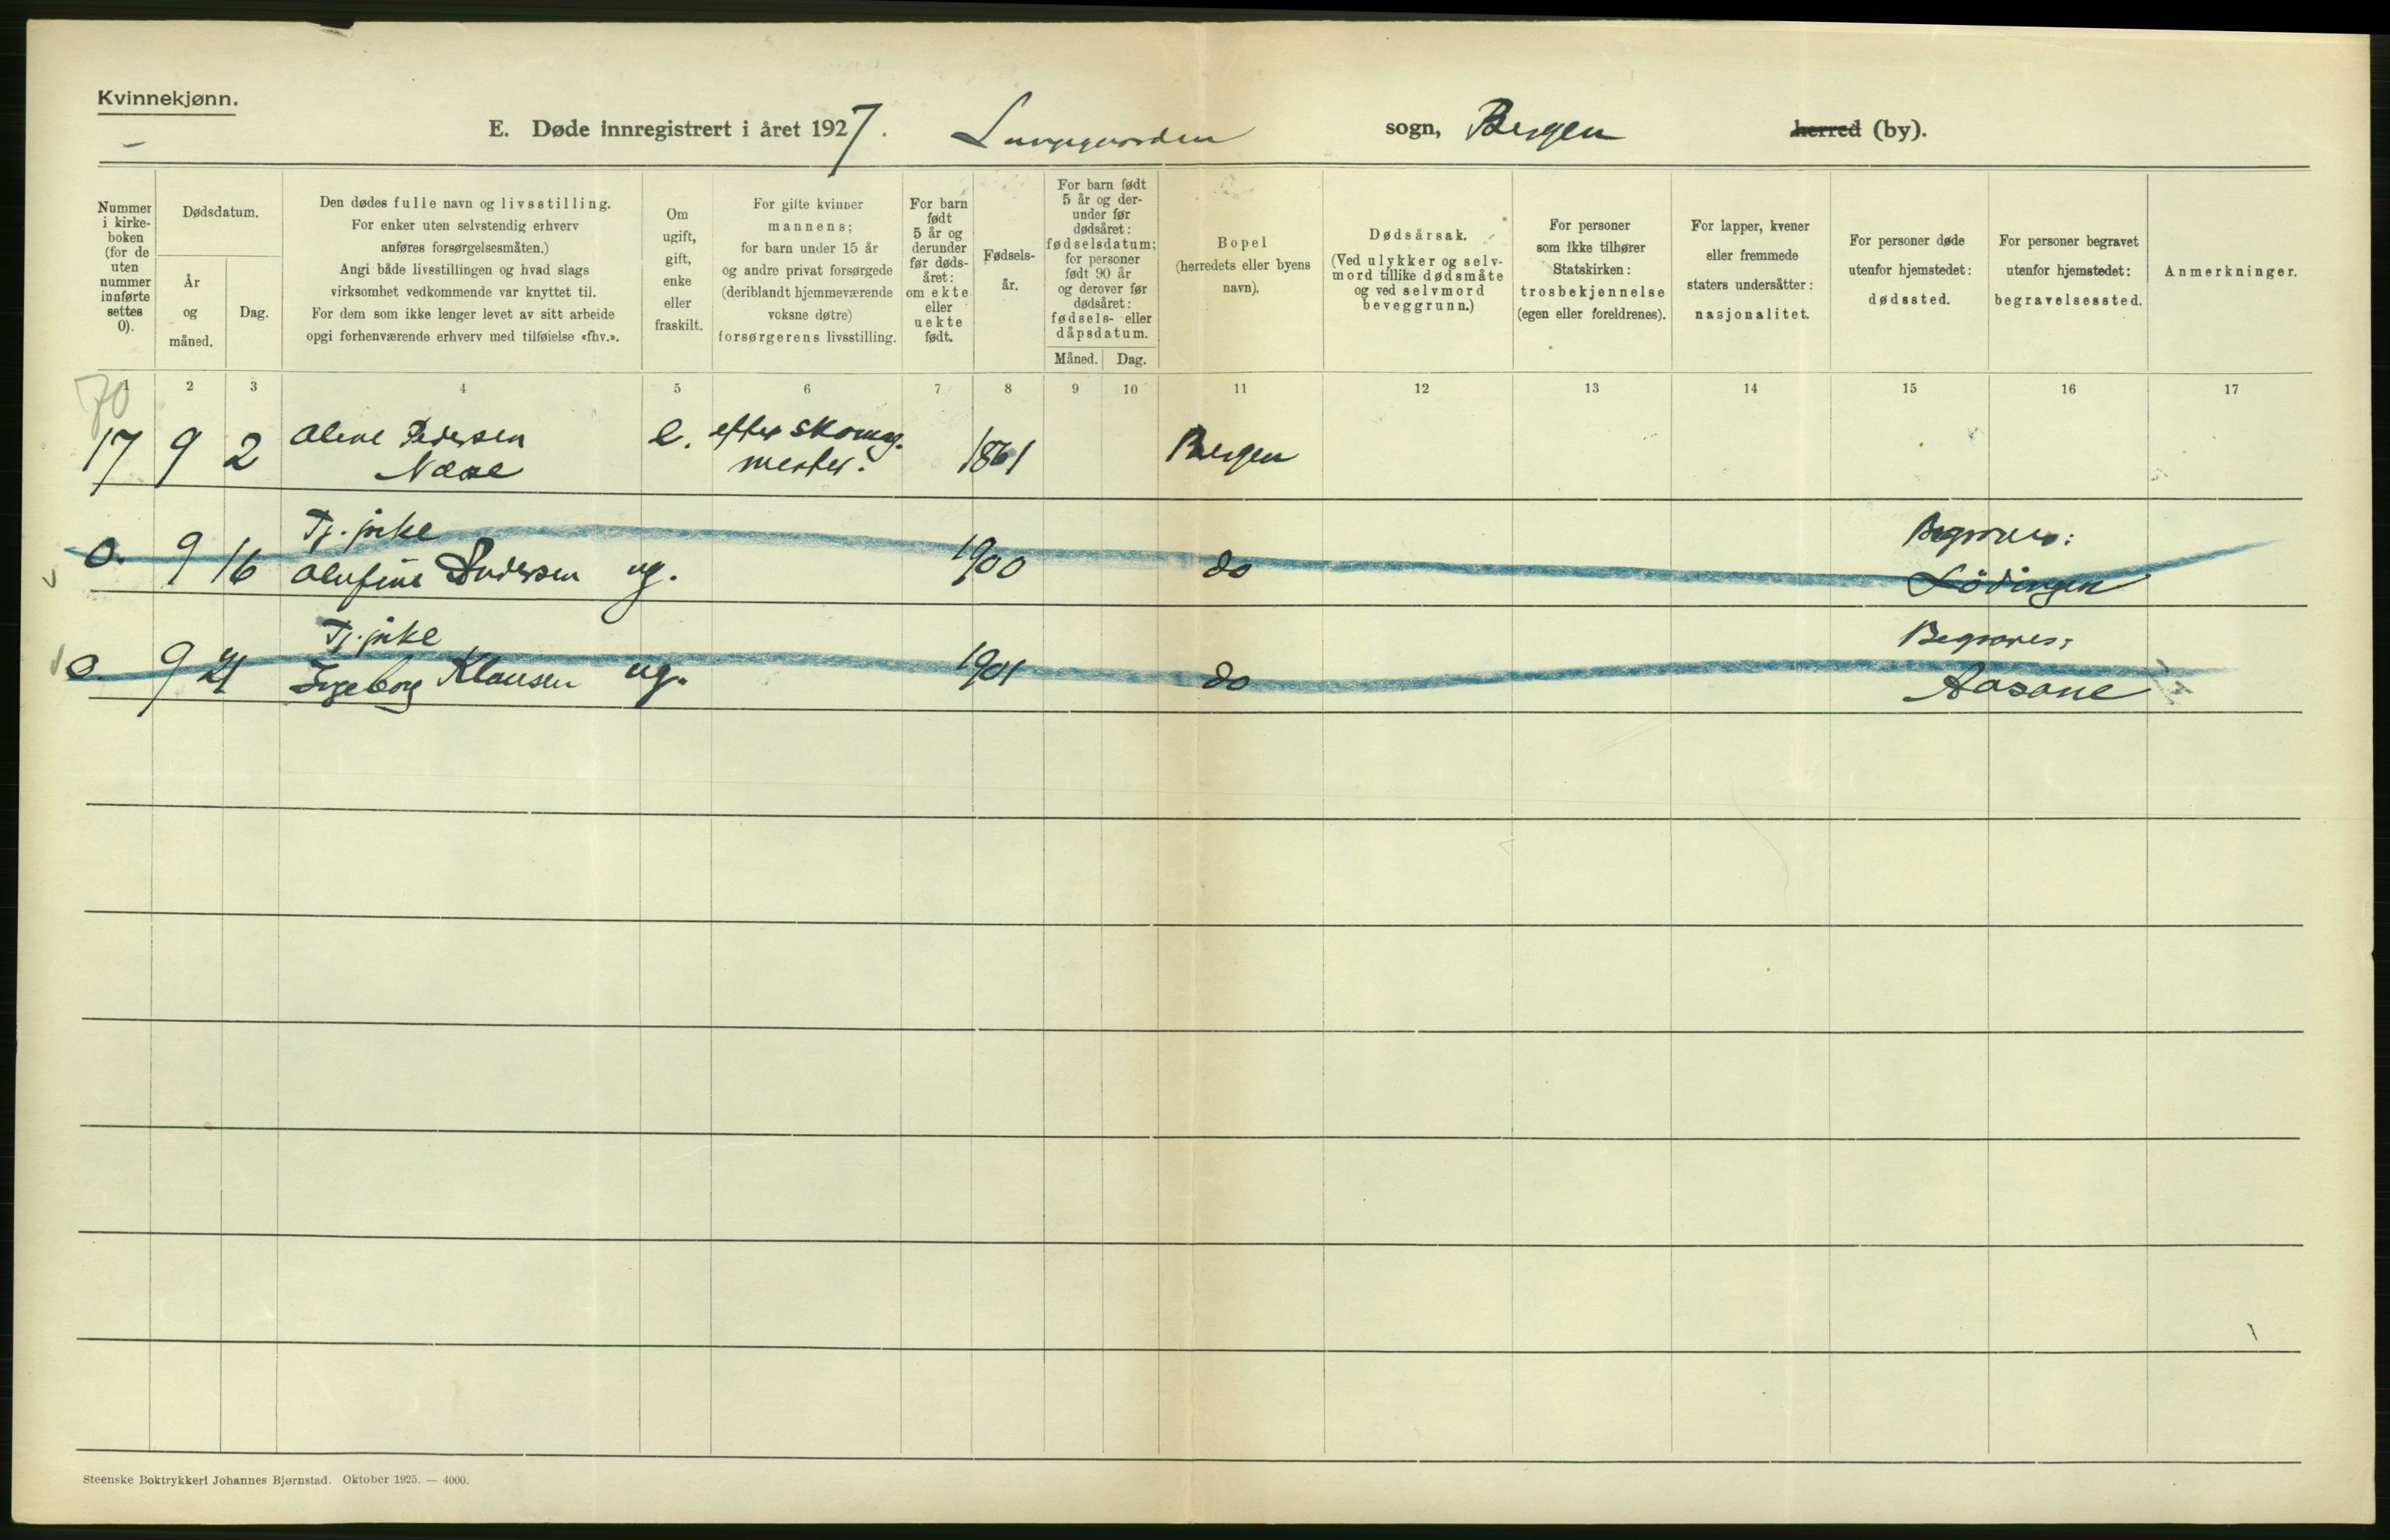 Kvinnekjønn.
E. Døde innregistrert i året 1927. Lungegaarden sogn, Bergen herred (by).
Nummer i kirke- boken (for de uten nummer innførte settes 0).
Dødsdatum.
År og måned.
Dag.
Den dødes fulle navn og livsstilling.
For enker uten selvstendig erhverv
anføres forsørgelsesmåten.)
Angi både livsstillingen og hvad slags
virksomhet vedkommende var knyttet til.
For dem som ikke lenger levet av sitt arbeide
opgi forhenværende erhverv med tilføielse «fhv.».
Om
ugift,
gift,
enke
eller
fraskilt.
For gifte kvinner
mannens;
for barn under 15 år
og andre privat forsørgede
(deriblandt hjemmeværende
voksne døtre)
forsørgerens livsstilling.
For barn
født
5 år og
derunder
før døds-
året:
om ekte
eller
uekte
født.
Fødsels-
år.
For barn født
5 år og der-
under før
dødsåret:
fødselsdatum;
for personer
født 90 år
og derover før
dødsåret:
fødsels- eller
dåpsdatum.
Måned. Dag.
Bopel
(herredets eller byens
navn).
Dødsårsak.
(Ved ulykker og selv-
mord tillike dødsmåte
og ved selvmord
beveggrunn.)
For personer
som ikke tilhører
Statskirken:
trosbekjennelse
(egen eller foreldrenes).
For lapper, kvener
eller fremmede
staters undersåtter:
nasjonalitet.
For personer døde
utenfor hjemstedet:
dødssted.
For personer begravet
utenfor hjemstedet:
begravelsessted.
Anmerkninger.
1 2 3 4 5 6 7 8 9 10 11 12 13 14 15 16 17
70
17 9 2 Oline Pedersen e. efter skomag. 1861 Bergen
mester.
Tj. pike Begraves:
0. 9 16 Olufine Andersen ug. 1900 do Lödingen
Tj. pike Begraves:
0. 9 21 Ingeborg Klausen ug. 1901 do Aasane
Steenske Boktrykkeri Johannes Bjørnstad. Oktober 1925. — 4000.